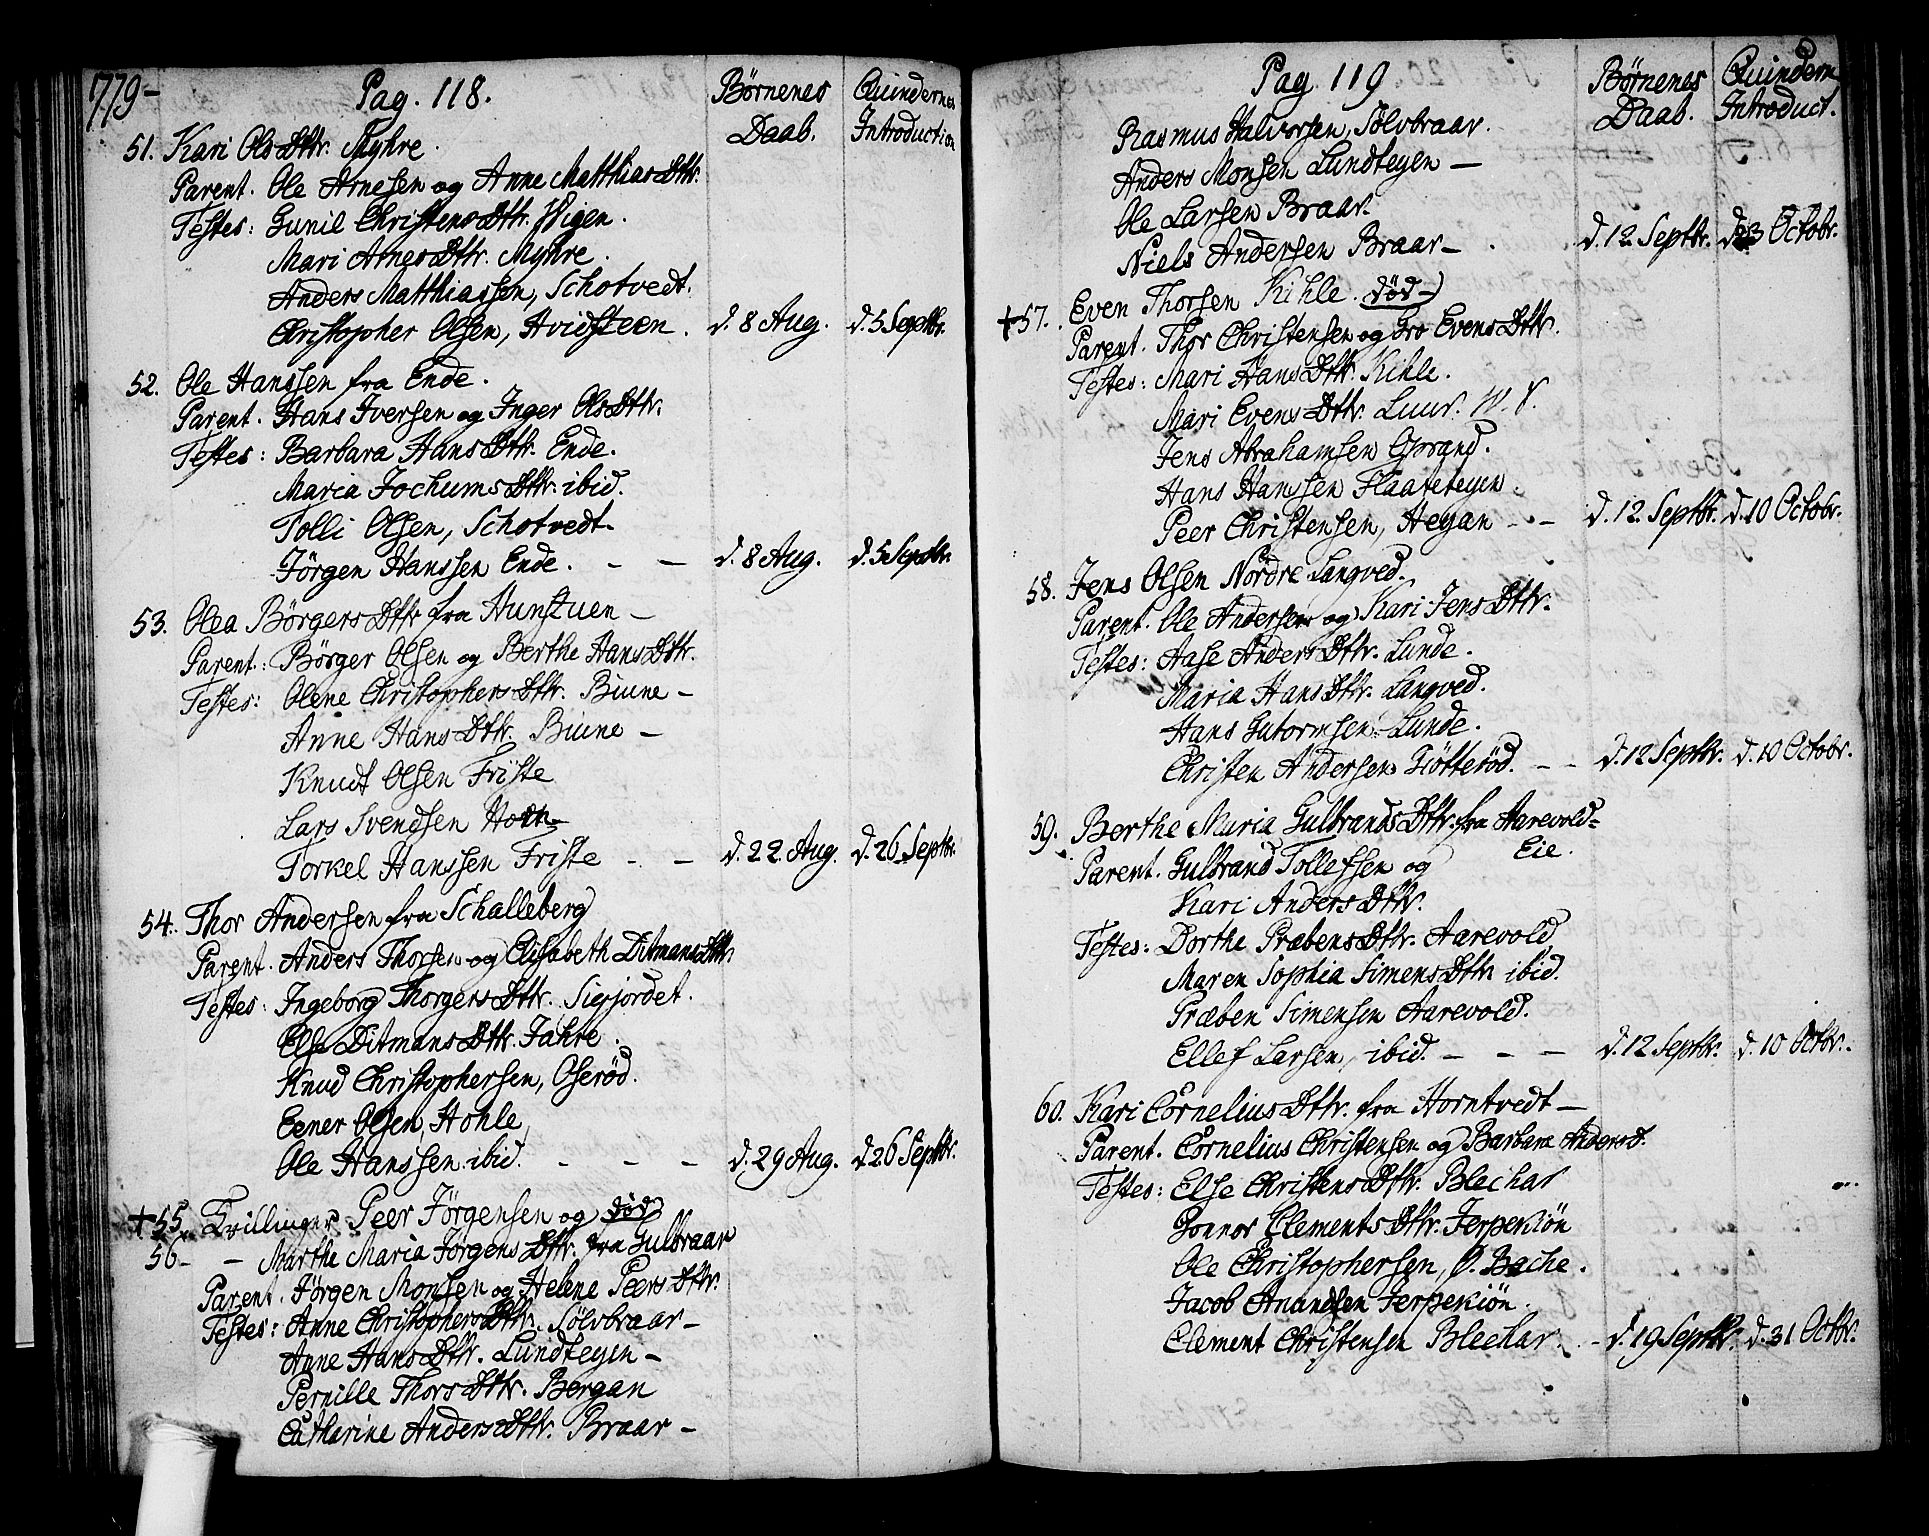 779-
Pag. 118.
Börnenes Daab.
Quindernes Introduction
51. Kari OlsDttr. Myhre.
Parent. Ole Arnesen og Anne MatthiasDttr.
Testes: Gunil ChristensDttr. Wigen.
Mari ArnesDttr. Myhre.
Anders Matthiassen, Schotvedt.
Christopher Olsen, Hvidsteen. d. 8 Aug. d. 5 Septbr.
52. Ole Hanssen fra Ende.
Parent. Hans Iversen og Inger OlsDttr.
Testes: Barbara HansDttr. Ende.
Maria JochumsDttr. ibid.
Tolli Olsen, Schotvedt.
Jörgen Hanssen Ende. - - d. 8 Aug. d. 5 Septbr.
53. Olea BörgersDttr fra Hunstuen -
Parent.: Börger Olsen og Berthe HansDttr.
Testes: Olene ChristophersDttr. Biune -
Anne HansDttr. Biune -
Knudt Olsen Friste
Lars Svendsen
Torkel Hanssen Friste - - d. 22. Aug. d. 26 Septbr.
54. Thor Andersen fra Schalleberg
Parent. Anders Thorsen og Elisabeth DitmansDttr
Testes: Ingeborg ThorgersDttr. Siefjordet.
Else DitmansDttr. Jahre.
Knud Christophersen, Oserød.
Eener Olsen, Hohle
Ole Hanssen ibid. - - - d. 29 Aug. d. 26 Septbr.
+ 55. Tvillinger Peer Jörgensen og död
56 - - Marthe Maria JörgensDttr. fra Gulbraar
Parent. Jörgen Monsen og Helene PeersDttr.
Testes: Anne ChristophersDttr. Sölvbraar -
Anne HansDttr. Lundtegen -
Pernille ThorsDttr. Bergan
Catharine AndersDttr. Braar -
Pag. 119
Börnenes Daab.
Quindern Introduct.
Rasmus Halvorsen, Sölvbraar.
Anders Monsen Lundtegen -
Ole Larsen Braar.
Niels Andersen Braar - . d. 12 Septbr. d. 3 Octobr.
+ 57. Even Thorsen Kihle. död -
Parent. Thor Christensen og Gro EvensDttr.
Testes: Mari HansDttr. Kihle.
Mari EvensDttr. Luur.
Jens Abrahamsen
Hans Hanssen Flaatetegen.
Peer Christensen, Heyan - - d. 12. Septbr. d. 10 Octobr.
58. Jens Olsen Nordre Langved.
Parent. Ole Andersen og Kari JensDttr.
Testes: Aase AndersDttr. Lunde.
Maria HansDttr. Langved.
Hans Gutormsen Lunde.
Christen Andersen Giötteröd. - - d. 12 Septbr. d. 10 Octobr.
59. Berthe Maria GulbrandsDttr. fra Aarevold=
Eie.
Parent. Gulbrand Tollefsen og
Kari AndersDttr.
Testes: Dorthe PræbensDttr. Aarevold
Maren Sophia SimensDttr ibid.
Præben Simensen Aarevold.
Ellef Larsen, ibid. - - - d. 12 Septbr. d. 10 Octbr.
60. Kari CorneliusDttr. fra Horntvedt -
Parent. Cornelius Christensen og Barbara Andersd.
Testes: Else ChristensDttr. Blechar
Gonnor ClementsDttr. Jerpekiön
Ole Christophersen, O. Bache.
Jacob Anundsen Jerpekiön.
Clement Christensen Blechar. - d. 19 Septbr. d. 31 Octbr.